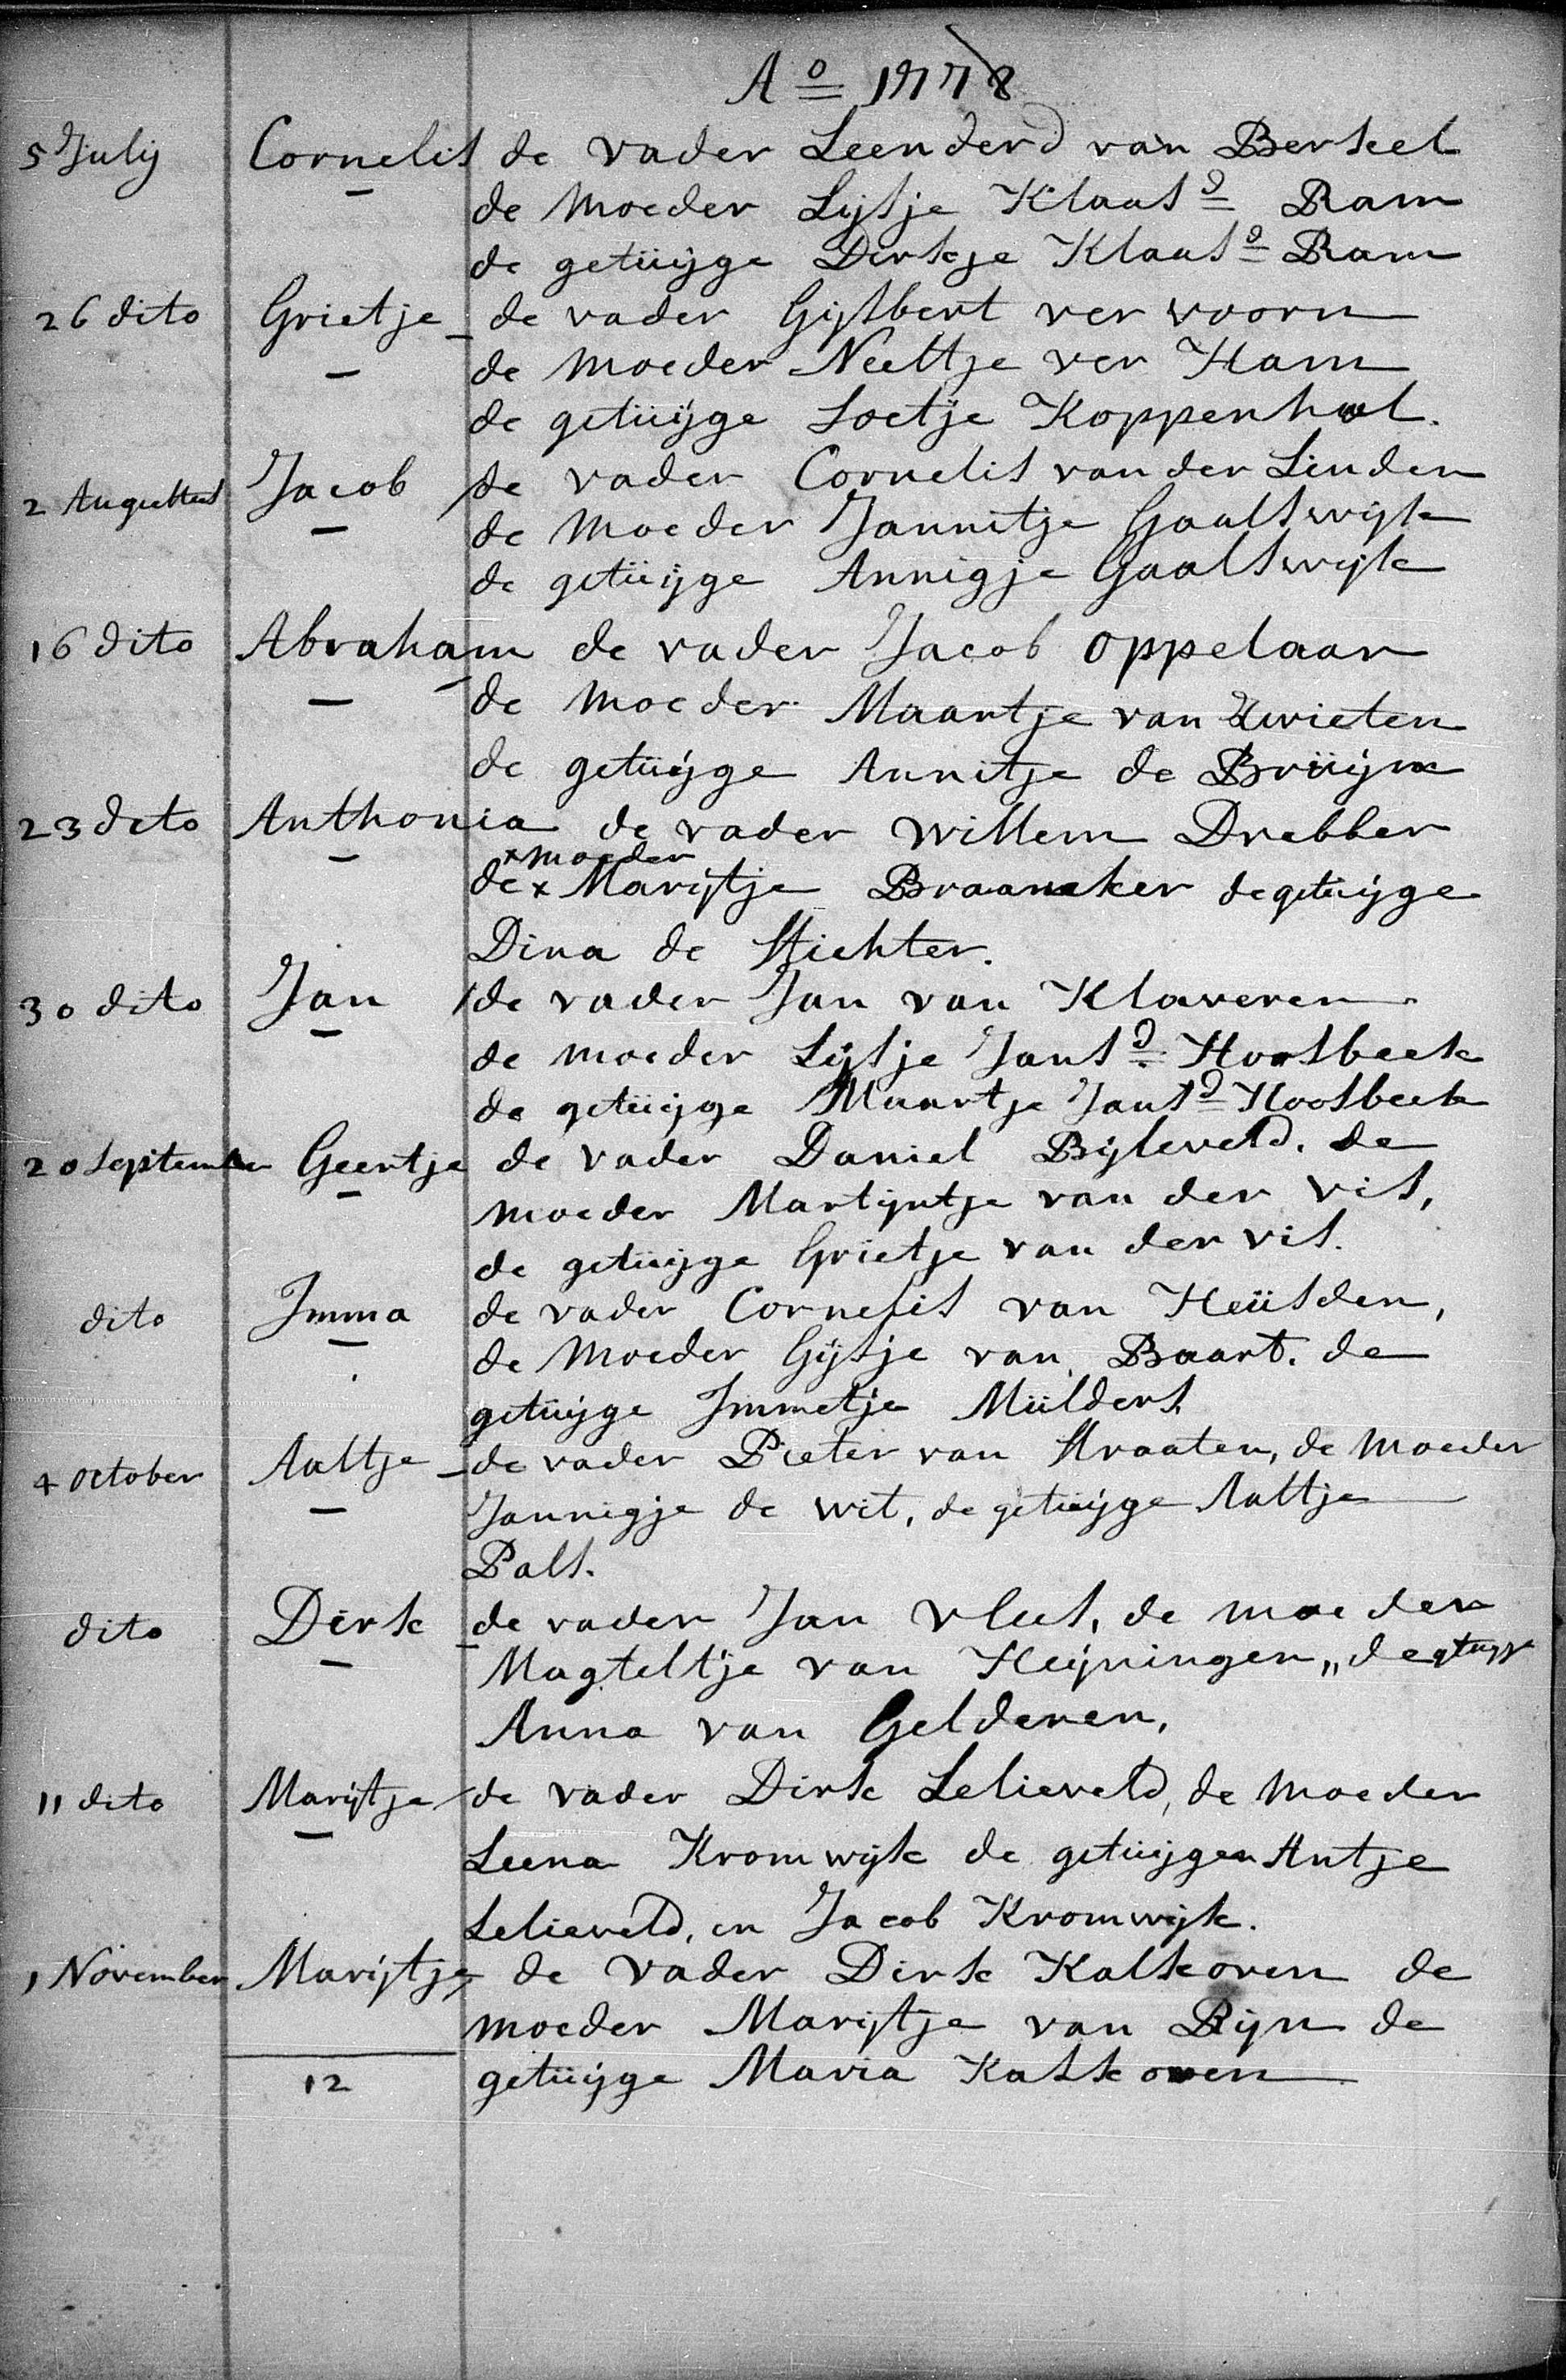 Ao 1778
5 July Cornelis de vader Leenderd van Berkel
de Moeder Lijsje Klaasd Ram
de getüijge Dirkje Klaasd Ram
26 dito Grietje de vader Gijsbert ver voorn
de Moeder Neeltje ver Ham
de getüijge Soetje Koppenhol.
2 Augustus Jacob de vader Cornelis van der Linden
de Moeder Jannitje Gaalswijk
de getüijge Annigje Gaalswijk
16 dito Abraham de vader Jacob oppelaar
de Moeder Maartje van Zwieten
de getüijge Annitje de Brüijn
23 dito Anthonia de vader Willem Drebber
x moeder
de x Marijtje Braaneker de getüijge
Dina de Stichter.
30 dito Jan de vader Jan van Klaveren
de moeder Lijsje Jansd Hoosbeek
de getüijge Maartje Jansd Hoosbeek
20 September Geertje de vader Daniel Bijleveld. de
moeder Martijntje van der vis,
de getüijge Grietje van der vis.
dito Imma de vader Cornelis van Heüsden,
de Moeder Gijsje van Baart. de
getüijge Immetje Mülders
4 October Aaltje de vader Pieter van Straaten, de Moeder
Jannigje de wit, de getüijge Aaltje
Pals.
dito Dirk de vader Jan vlees, de moeder
Magteltje van Heijningen,, de
Anna van Gelderen,
11 dito Marijtje de vader Dirk Lelieveld, de Moeder
Leena Kromwijk de getüijgen Antje
Lelieveld, en Jacob Kromwijk.
1 November Marijtje de vader Dirk Kalkoven de
moeder Marijtje van Rijn de
12 getüijge Maria Kalkoven